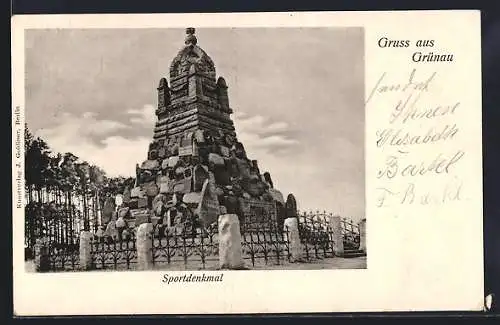 Gruss aus
Grünau
sendet
Ihnen
Elisabeth
Bartel
F Bartel
Sportdenkmal
Kunstverlag J. Goldiner, Berlin